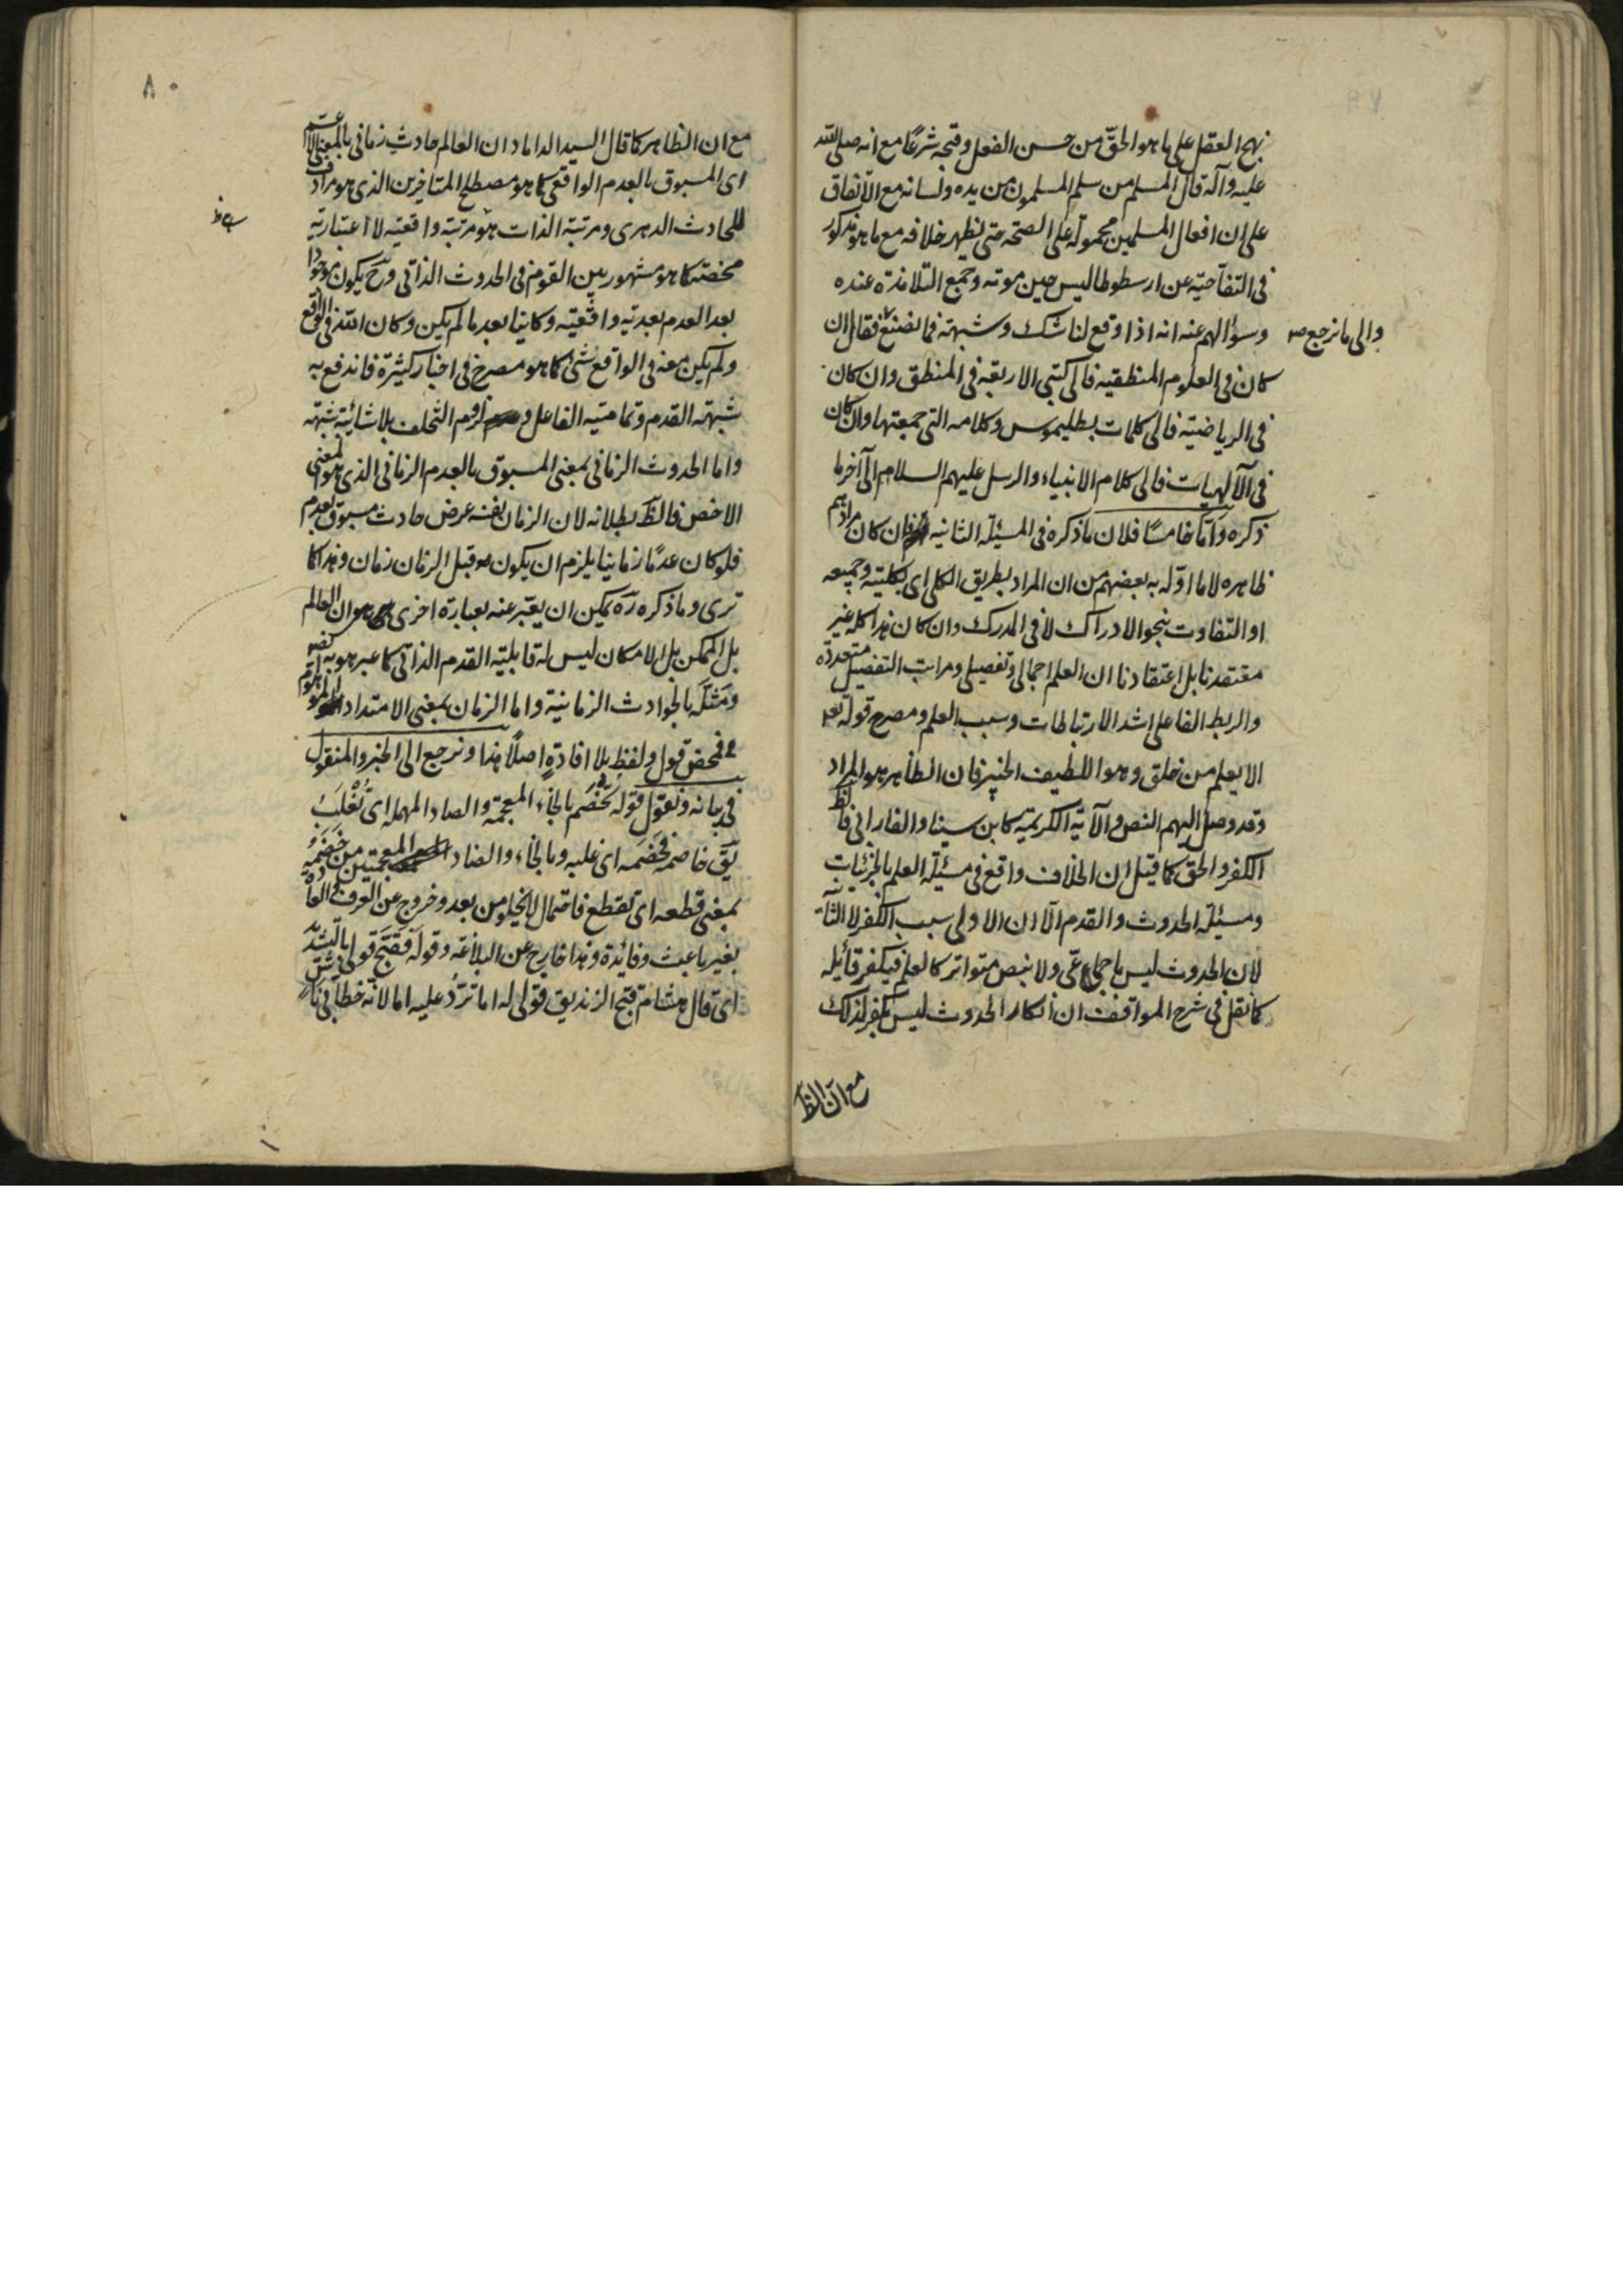 نهج العقل على ما هو الحقّ من حسن الفعل وقبحه شرعًا مع انه صلى الله
عليه وآله قال المسلم من سلم المسلمون من يده ولسانه مع الاتفاق
على ان افعال المسلمين محمولة على الصحة حتى يظهر خلافه مع ما هو مذكور
فى التفاحية عن ارسطوطاليس حين موته وجمع التلامذة عنده
وسؤالهم عنه انه اذا وقع لنا شك وشبهة فما نصنع فقال ان
والى ما نرجع صح
كان فى العلوم المنطقيه فالى كتبى الاربعة فى المنطق وان كان
فى الرياضية فالى كلمات بطليموس وكلامه التى جمعتها وان كان
فى الآلهيات فالى كلام الانبياء والرسل عليهم السلام الى آخر ما
ذكره وامّا خامسًا فلان ما ذكره فى المسئلة الثانيه فان كان مرادهم
ظاهره لا ما اوّله به بعضهم من ان المراد بطريق الكلى اى بكليته وجميعه
او التفاوت بنحو الادراك لا فى المدرك وان كان هذا كله غير
معتقدنا بل اعتقادنا ان العلم اجمالى وتفصيلى ومراتب التفصيل متعددة
والربط الفاعلى اشد الارتباطات وسبب العلم ومصرح قوله تعه
الا يعلم من خلق وهو اللطيف الخبير فان الظاهر هو المراد
وقد وصل اليهم النص والآية الكريمة كابن سينا والفارابى فالظ
الكفر والحق كما قيل ان الخلاف واقع فى مسئلة العلم بالجزئيات
ومسئلة الحدوث والقدم الّا ان الاولى سبب الكفر لا الثانية
لان الحدوث ليس باجماعى ولا بنص متواتر كالعلم فيكفر قائله
كما نقل فى شرح المواقف ان انكار الحدوث ليس بكفر لذلك
مع ان الظ
٨٠
مع ان الظاهر كما قال السيد الداماد ان العالم حادث زمانى بالمعنى الاعم
اى المسبوق بالعدم الواقعى كما هو مصطلح المتاخرين الذى هو مرادف
للحادث الدهرى ومرتبة الذات هو مرتبة واقعيه لا اعتبارية
محضة كما هو مشهور بين القوم فى الحدوث الذاتى وح يكون موجودا
بعد العدم بعدية واقعيه وكاينا بعد ما لم يكن وكان الله فى الواقع
ولم يكن معه فى الواقع شئ كما هو مصرح فى اخبار كثيرة فاندفع به
شبهة القدم وتمامية الفاعل ولزوم التخلف بلا شائبة شبهة
واما الحدوث الزمانى بمعنى المسبوق بالعدم الزمانى الذى هو المعنى
الاخص فالظ بطلانه لان الزمان نفسه عرض حادث مسبوق بعدم
فلو كان عدمًا زمانيا يلزم ان يكون قبل الزمان زمان وهذا كما
ترى وما ذكره ره يمكن ان يعبّر عنه بعبارة اخرى هو ان العالم
بل الممكن بل الامكان ليس له قابلية القدم الذاتى كما عبر هو به نفسه
ومثله بالحوادث الزمانية واما الزمان بمعنى الامتداد الموهوم
فمحض قول ولفظ بلا افادةٍ اصلًا هذا ونرجع الى الخبر والمنقول
فى بيانه ونقول قوله تخصم بالخاء المعجمة والصاد المهملة اى تُغلَبُ
يق خاصمه فخصمه اى غلبه وبالخاء والضاد المعجمتين من خضمه
بمعنى قطعه اى تقطع فاحتمال لا يخلو من بعد وخروج عن العرف والعادة
بغير باعث وفائدة وهذا خارج عن البلاغة وقوله فقبّح قولى بالتشديد
اى قال هشام قبّح الزنديق قولى له اما تردّ عليه اما لانه خطابى